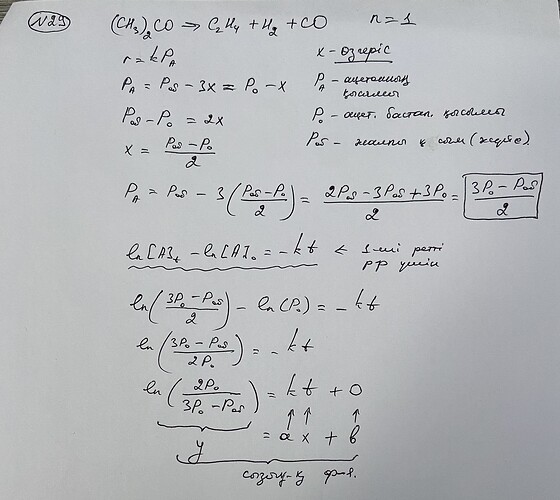 №29 (CH₃)₂CO ⇒ C₂H₄ + H₂ + CO n = 1
r = kP_A x - өзгеріс
P_A = P_об - 3x = P_0 - x P_A - ацетонның қысымы
P_об - P_0 = 2x P_0 - ацет. бастап. қысымы
x = (P_об - P_0)/2 P_об - жалпы қысым (жүйе)
P_A = P_об - 3((P_об - P_0)/2) = (2P_об - 3P_об + 3P_0)/2 = (3P_0 - P_об)/2
ln[A]_t - ln[A]_0 = -kt ← 1-ші ретті рр үшін
ln((3P_0 - P_об)/2) - ln(P_0) = -kt
ln((3P_0 - P_об)/2P_0) = -kt
ln(2P_0/(3P_0 - P_об)) = kt + 0
y = a x + b
сызық-қ ф-я.